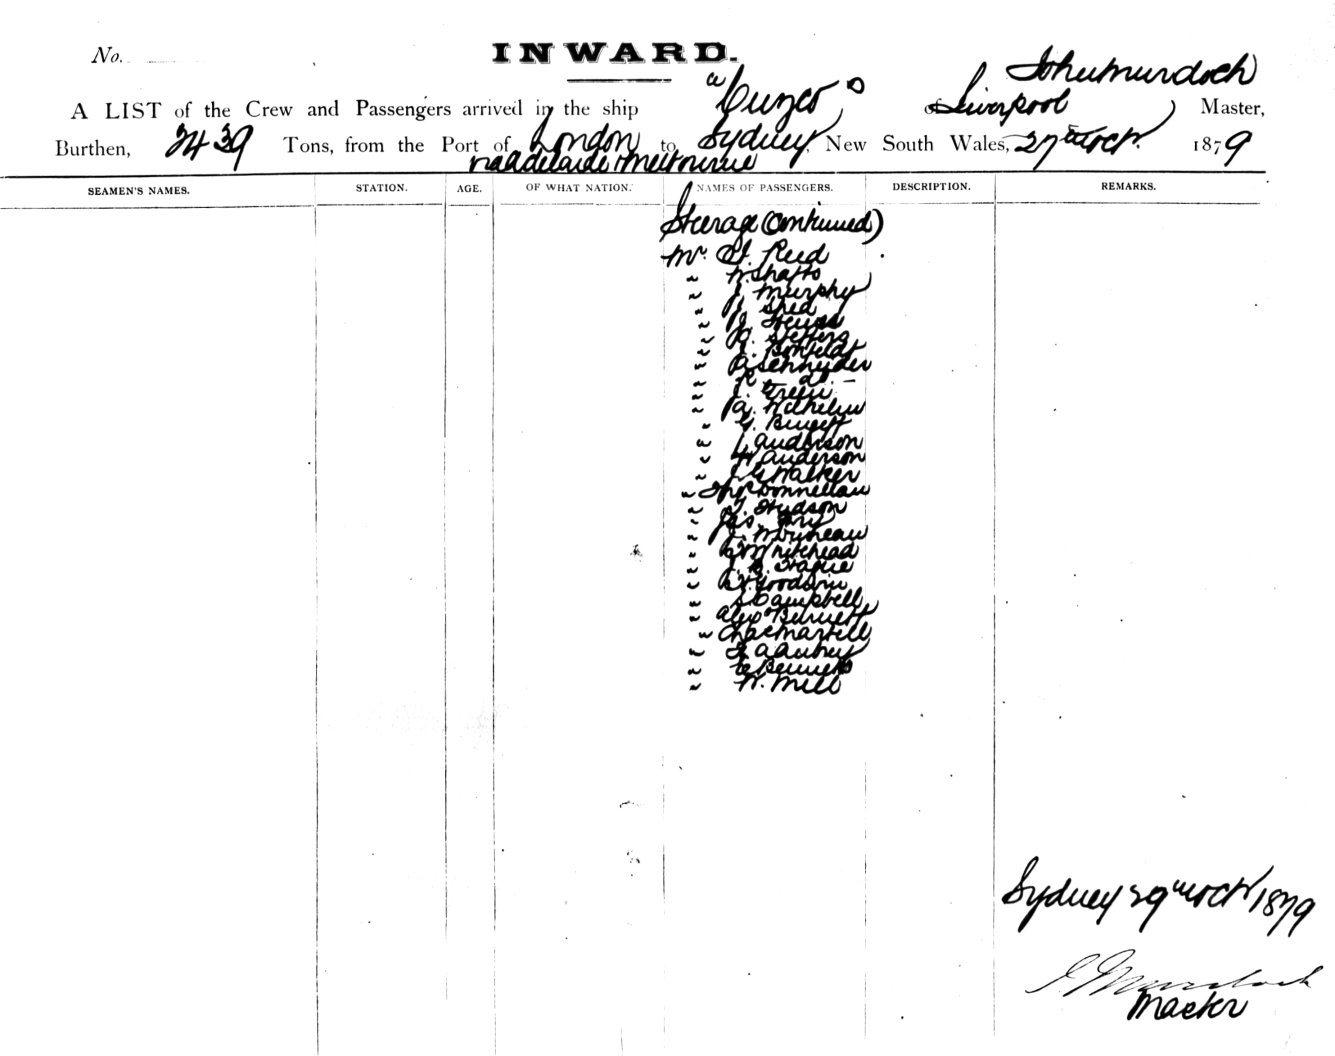 No.
INWARD.
John Murdoch
A LIST of the Crew and Passengers arrived in the ship "Cuzco" of Liverpool, Master,
Burthen, 2439 Tons, from the Port of London to Sydney, New South Wales, 27th Oct. 1879
via Adelaide & Melbourne
SEAMEN'S NAMES. STATION. AGE. OF WHAT NATION. NAMES OF PASSENGERS. DESCRIPTION. REMARKS.
Steerage (Continued)
Mr Reed
" W. Shafto
" J. Murphy
" Shed
"
"
" J. Bohfeldt
" P. Schnyder
" R — do —
"
" A. Wilhelm
" G.
" J. Anderson
" W. Anderson
" J. G. Walker
" Thos Donnellan
" T. Hudson
" Jas. Fry
" J.
" Whitehead
" J.
" Goodwin
" S. Campbell
" Alex Burnett
" Chas Martell
" Aubrey
" Bennett
" W. Mill
Sydney 29th Oct 1879
J. Murdoch
Master